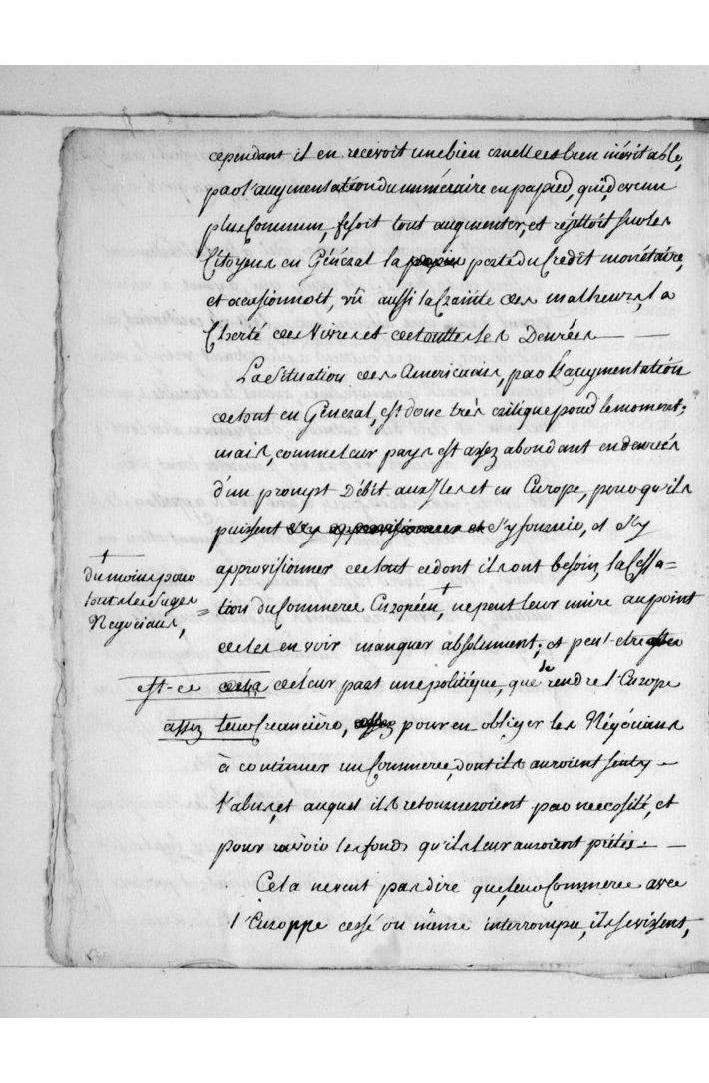 cependant il en recevoit une bien cruelle et bien inévitable,
par l'augmentation du numéraire en papier, qui, devenu
plus Commun, fesoit tout augmenter, et rejettoit sur les
Citoyens en Général la perte du Crédit monétaire,
et occasionnoit, vû aussi la Crainte des malheurs, la
Cherté des Vivres et de toutes les Denrées
La Situation des Americains, par l'augmentation
de tout en Général, est donc très critique pour le moment;
mais, comme leur pays est assez abondant en denrées
d'un prompt Débit aux Isles et en Europe, pour qu'ils
puissent s'y fournir, et s'y
approvisionner de tout ce dont ils ont besoin, la Cessa=
+
du moins pour
tous les Sages
Négocians,
tion du Commerce Européen +, ne peut leur nuire au point
de les en voir manquer absolument; et peut-etre
est-ce de leur part une politique, que de rendre l'Europe
assez leur Creancière, pour en obliger les Négocians
à continuer un Commerce, dont ils auroient senty
l'abus, et auquel ils retourneroient par necessité, et
pour ravoir les fonds qu'ils leur auroient prétés
Cela ne veut pas dire que, leur Commerce avec
l'Europpe cessé ou même interrompu, ils se vissent,